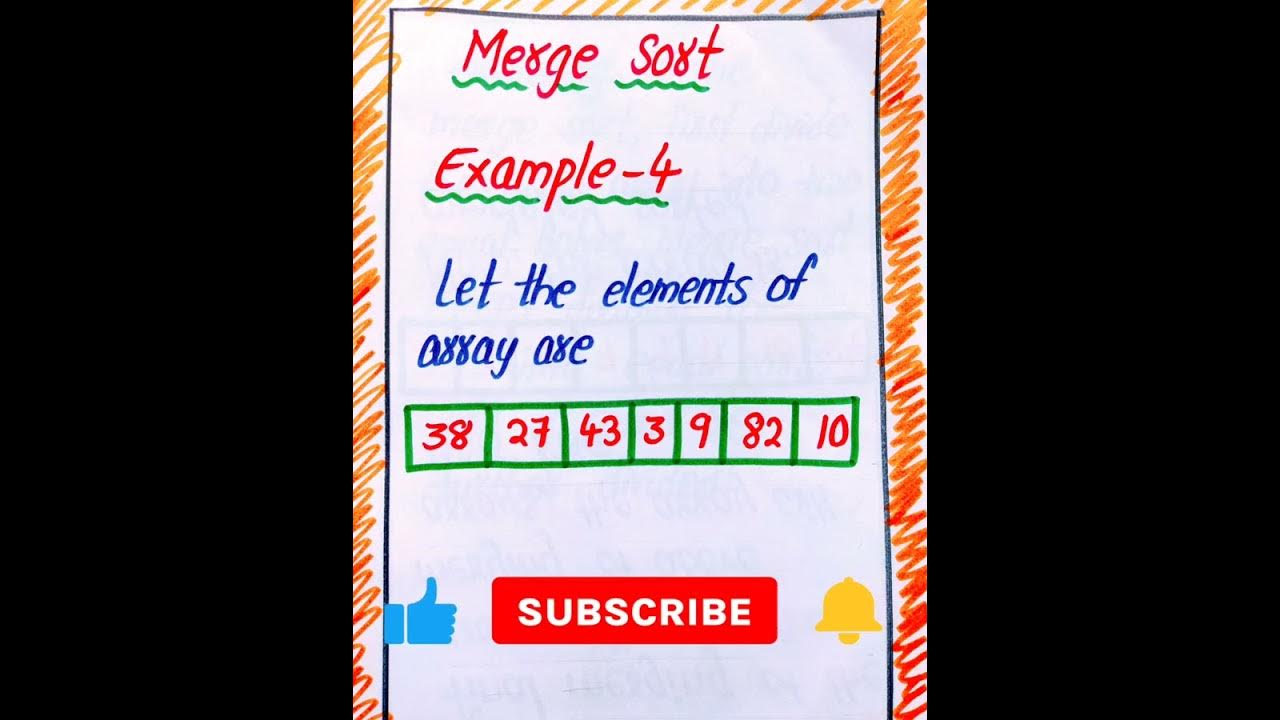 Merge Sort
Example-4
Let the elements of
array are
38 27 43 3 9 82 10
SUBSCRIBE